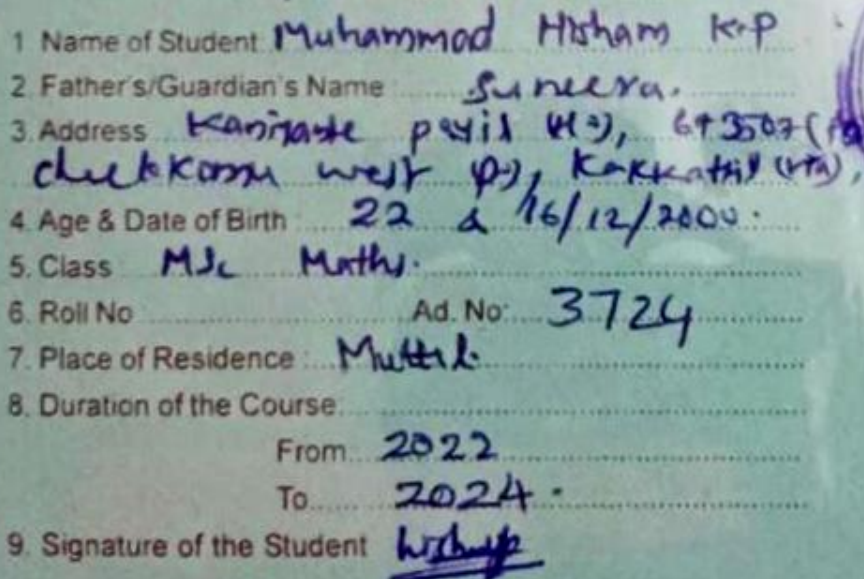 1 Name of Student Muhammad Hisham K.P
2. Father's/Guardian's Name : Suneera.
3. Address payil (H), 673507 (
west (P), Kakkattil (via),
4. Age & Date of Birth : 22 & 16/12/2000.
5. Class MSc Maths.
6. Roll No Ad. No: 3724
7. Place of Residence : Muttil.
8. Duration of the Course:
From 2022
To 2024.
9. Signature of the Student